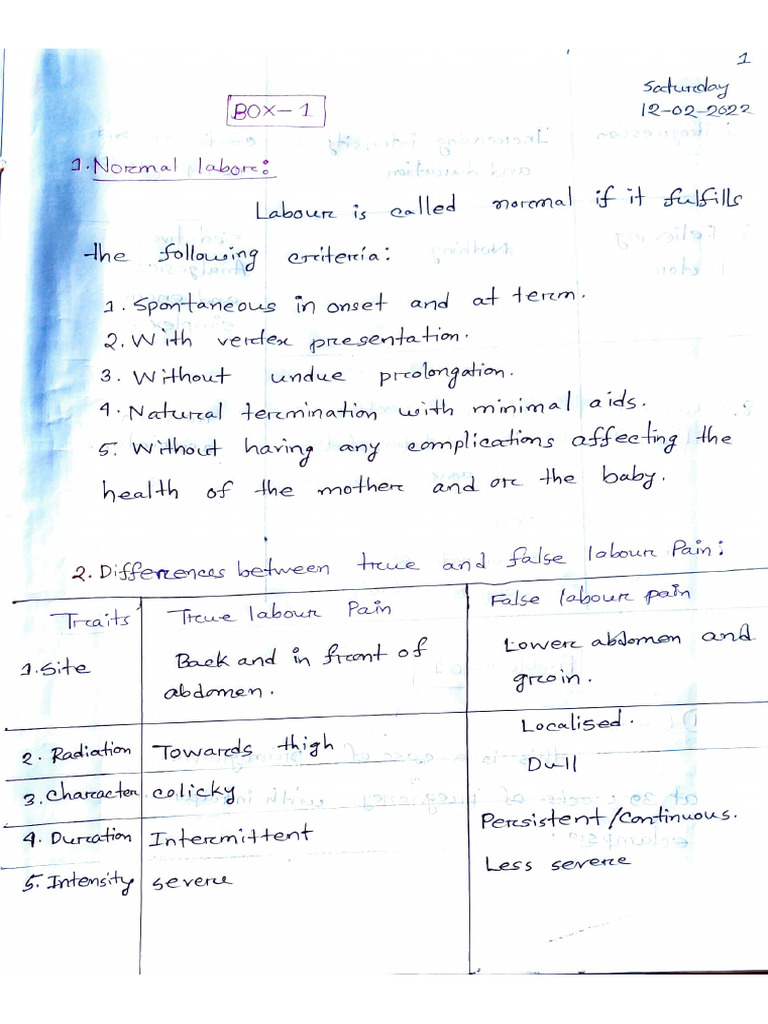 1
Saturday
12-02-2022
BOX-1
1. Normal labor:
Labour is called normal if it fulfills
the following criteria:
1. Spontaneous in onset and at term.
2. With vertex presentation.
3. Without undue prolongation.
4. Natural termination with minimal aids.
5. Without having any complications affecting the
health of the mother and or the baby.
2. Differences between true and false labour Pain:
Traits True labour Pain False labour pain
1. Site Back and in front of Lower abdomen and
abdomen. groin.
2. Radiation Towards thigh Localised.
3. Character colicky Dull
4. Duration Intermittent Persistent/Continuous.
5. Intensity severe Less severe